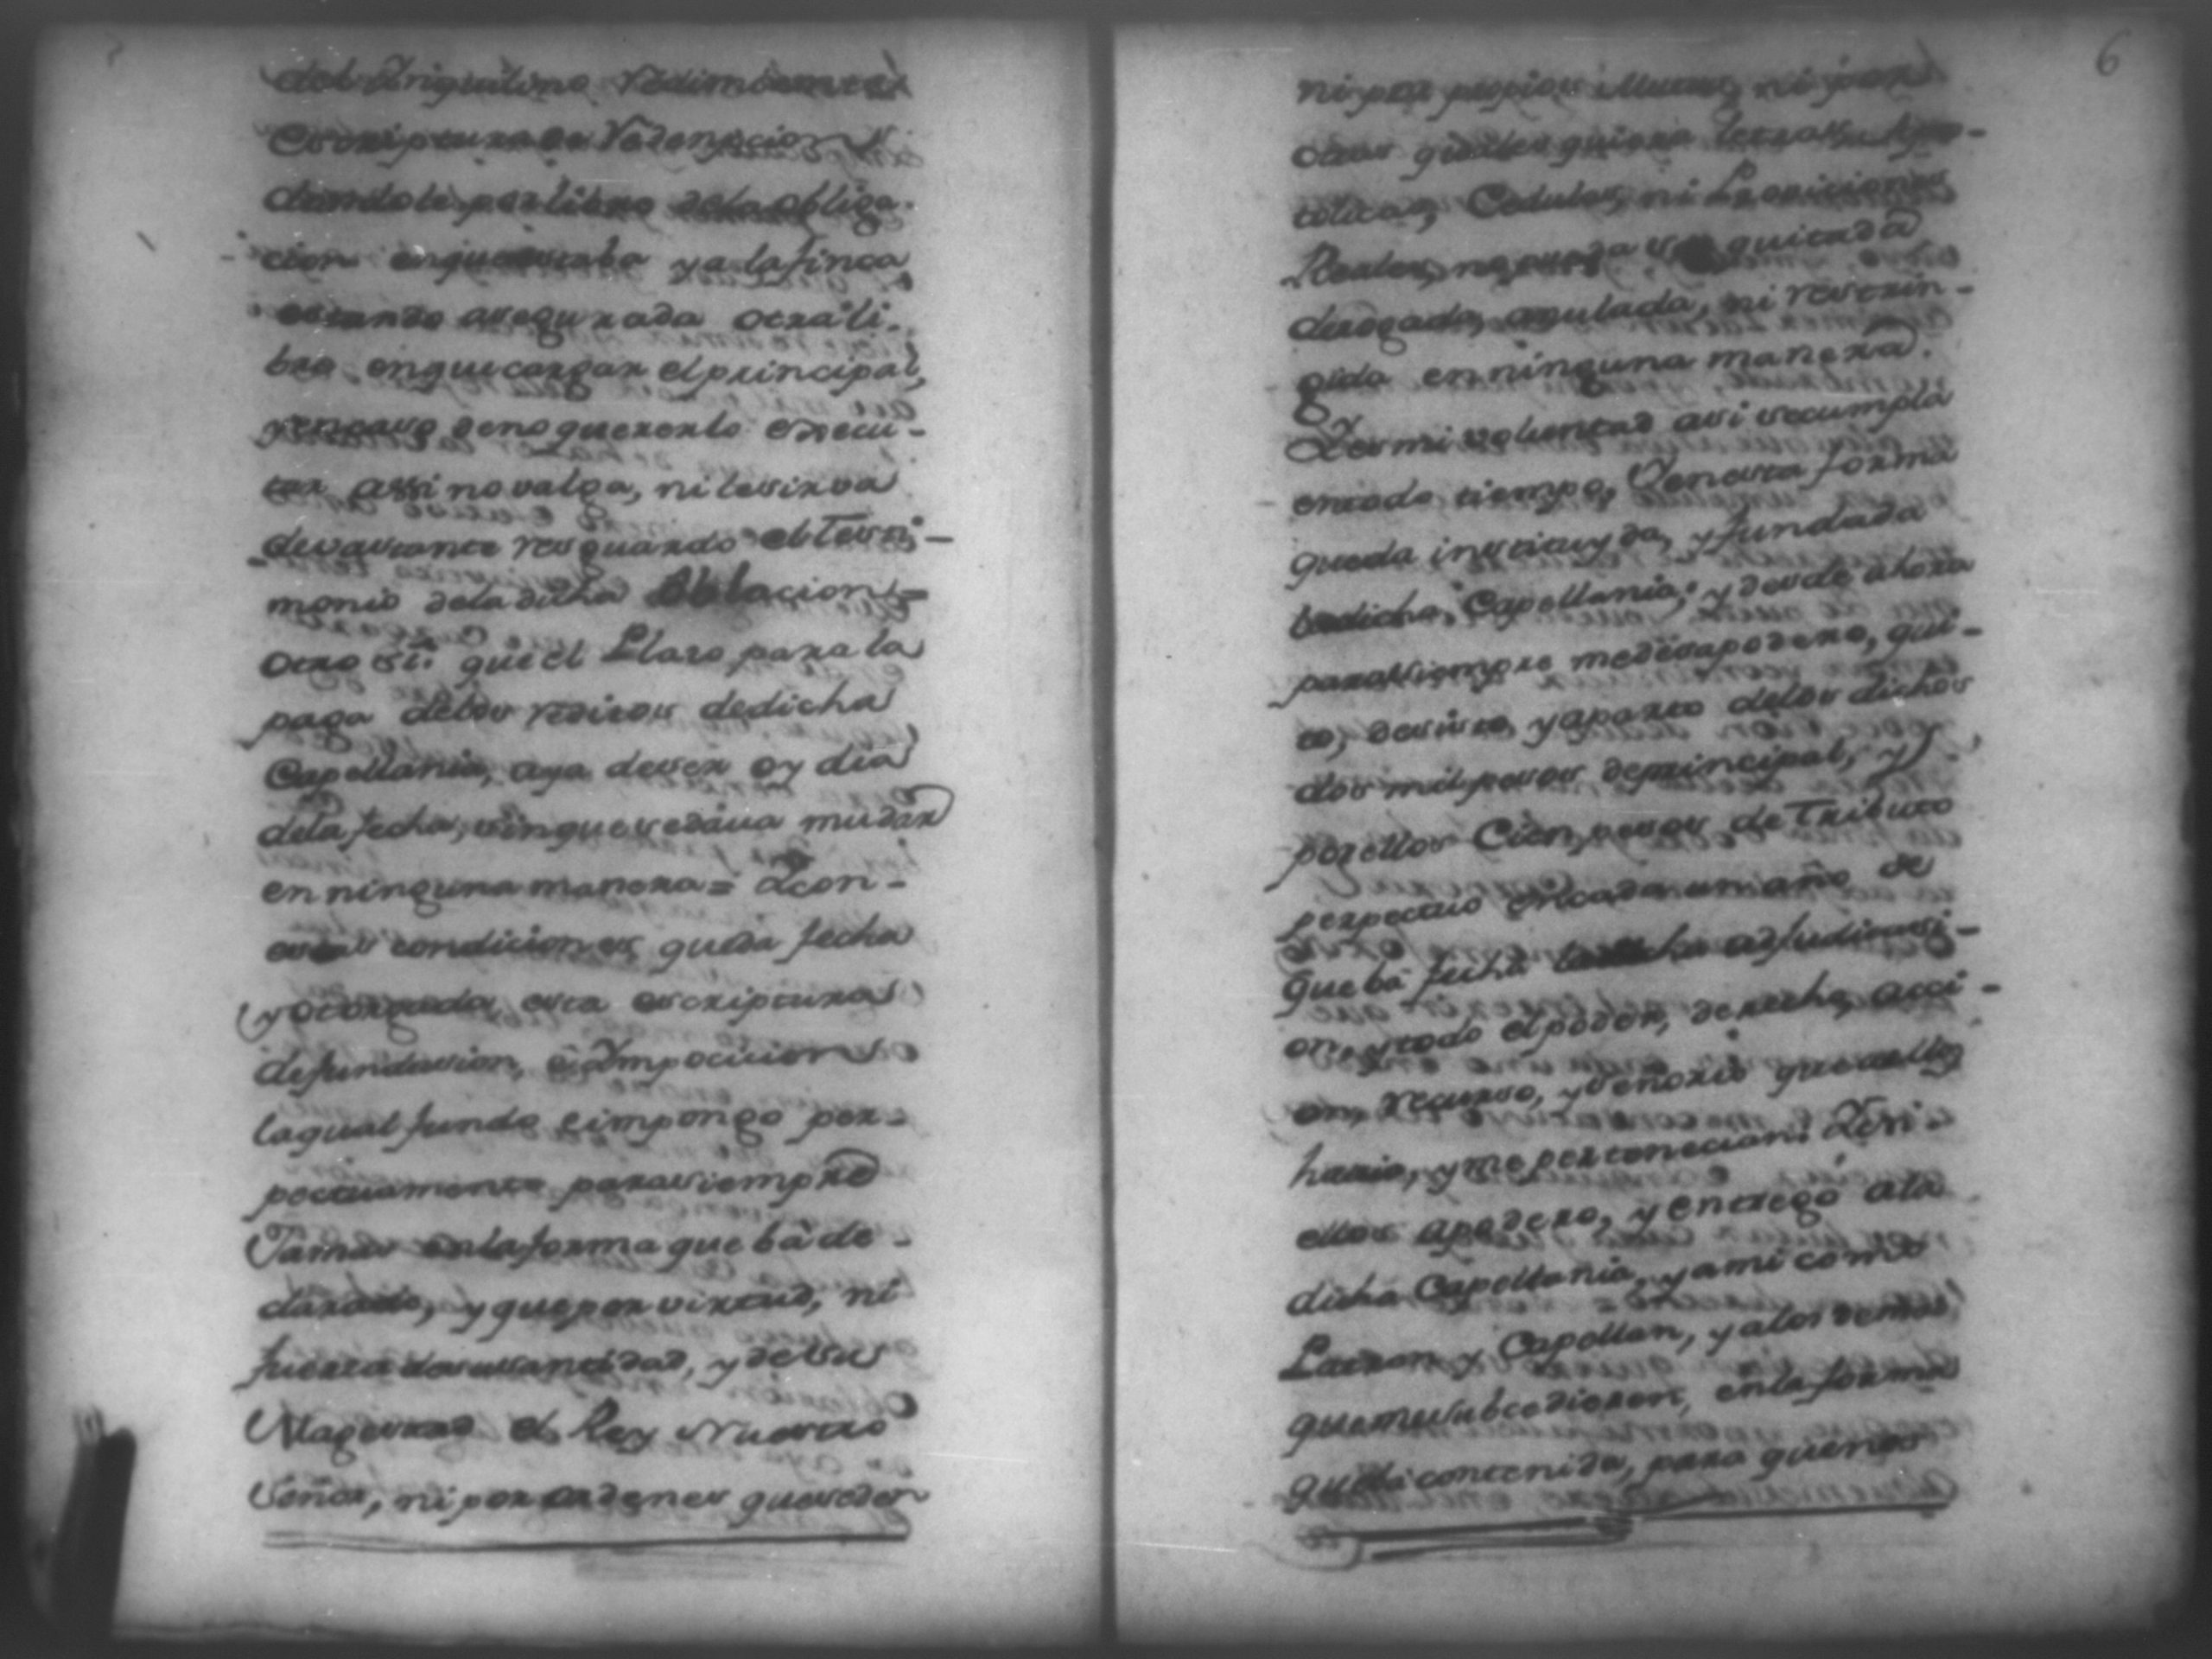 del Ynquilino redimiente
escriptura de redempcion
dandole por libre dela obliga-
cion enque estaba ya la finca
estando asegurada otra li-
bre enque cargar el principal,
yencaso deno quererlo execu-
tar assi no valga, ni lesirva
debastante resguardo el Testi-
monio dela dicha Oblacion =
Otro si: que el Plazo para la
paga delos reditos dedicha
Capellania, aya deser oy dia
dela fecha, sinque sedeva mudar
en ninguna manera = Y con-
estas condiciones queda fecha
y otorgada esta escriptura
defundasion, e ymposicion
laqual fundo e impongo per-
pectuamente parasiempre
Jamas enla forma que bá de-
clarado, y quepor virtud, ni
fuerza desusantidad, y desu
Magestad el Rey Nuestro
Señor, ni por ordenes que seden
6
ni por propios Motus, ni por
otras qualesquiera letras Apos-
tolicas, Cedulas, ni Proviciones
Reales, no pueda ser quitada
derogada, anulada, ni restrin-
gida en ninguna manera.
Y es mi voluntad asi secumpla
entodo tiempo, Yenesta forma
queda instituyda, y fundada
ladicha Capellania; y desde ahora
parasiempre medesapodero, qui-
to, desisto, yaparto delos dichos
dos mil pesos deprincipal, y
porellos Cien pesos de Tributo
perpectuo encada un año de
que bá fecha ladicha adjudicasi-
on, ytodo el poder, derecho, acci-
on, recurso, y señorio que aellos
havia, y me pertenecian: Y en
ellos apodero, y entrego ala
dicha Capellania, y ami como
Patron y Capellan, y alos demas
queme subcedieren, enla forma
que bá contenida, para quenos